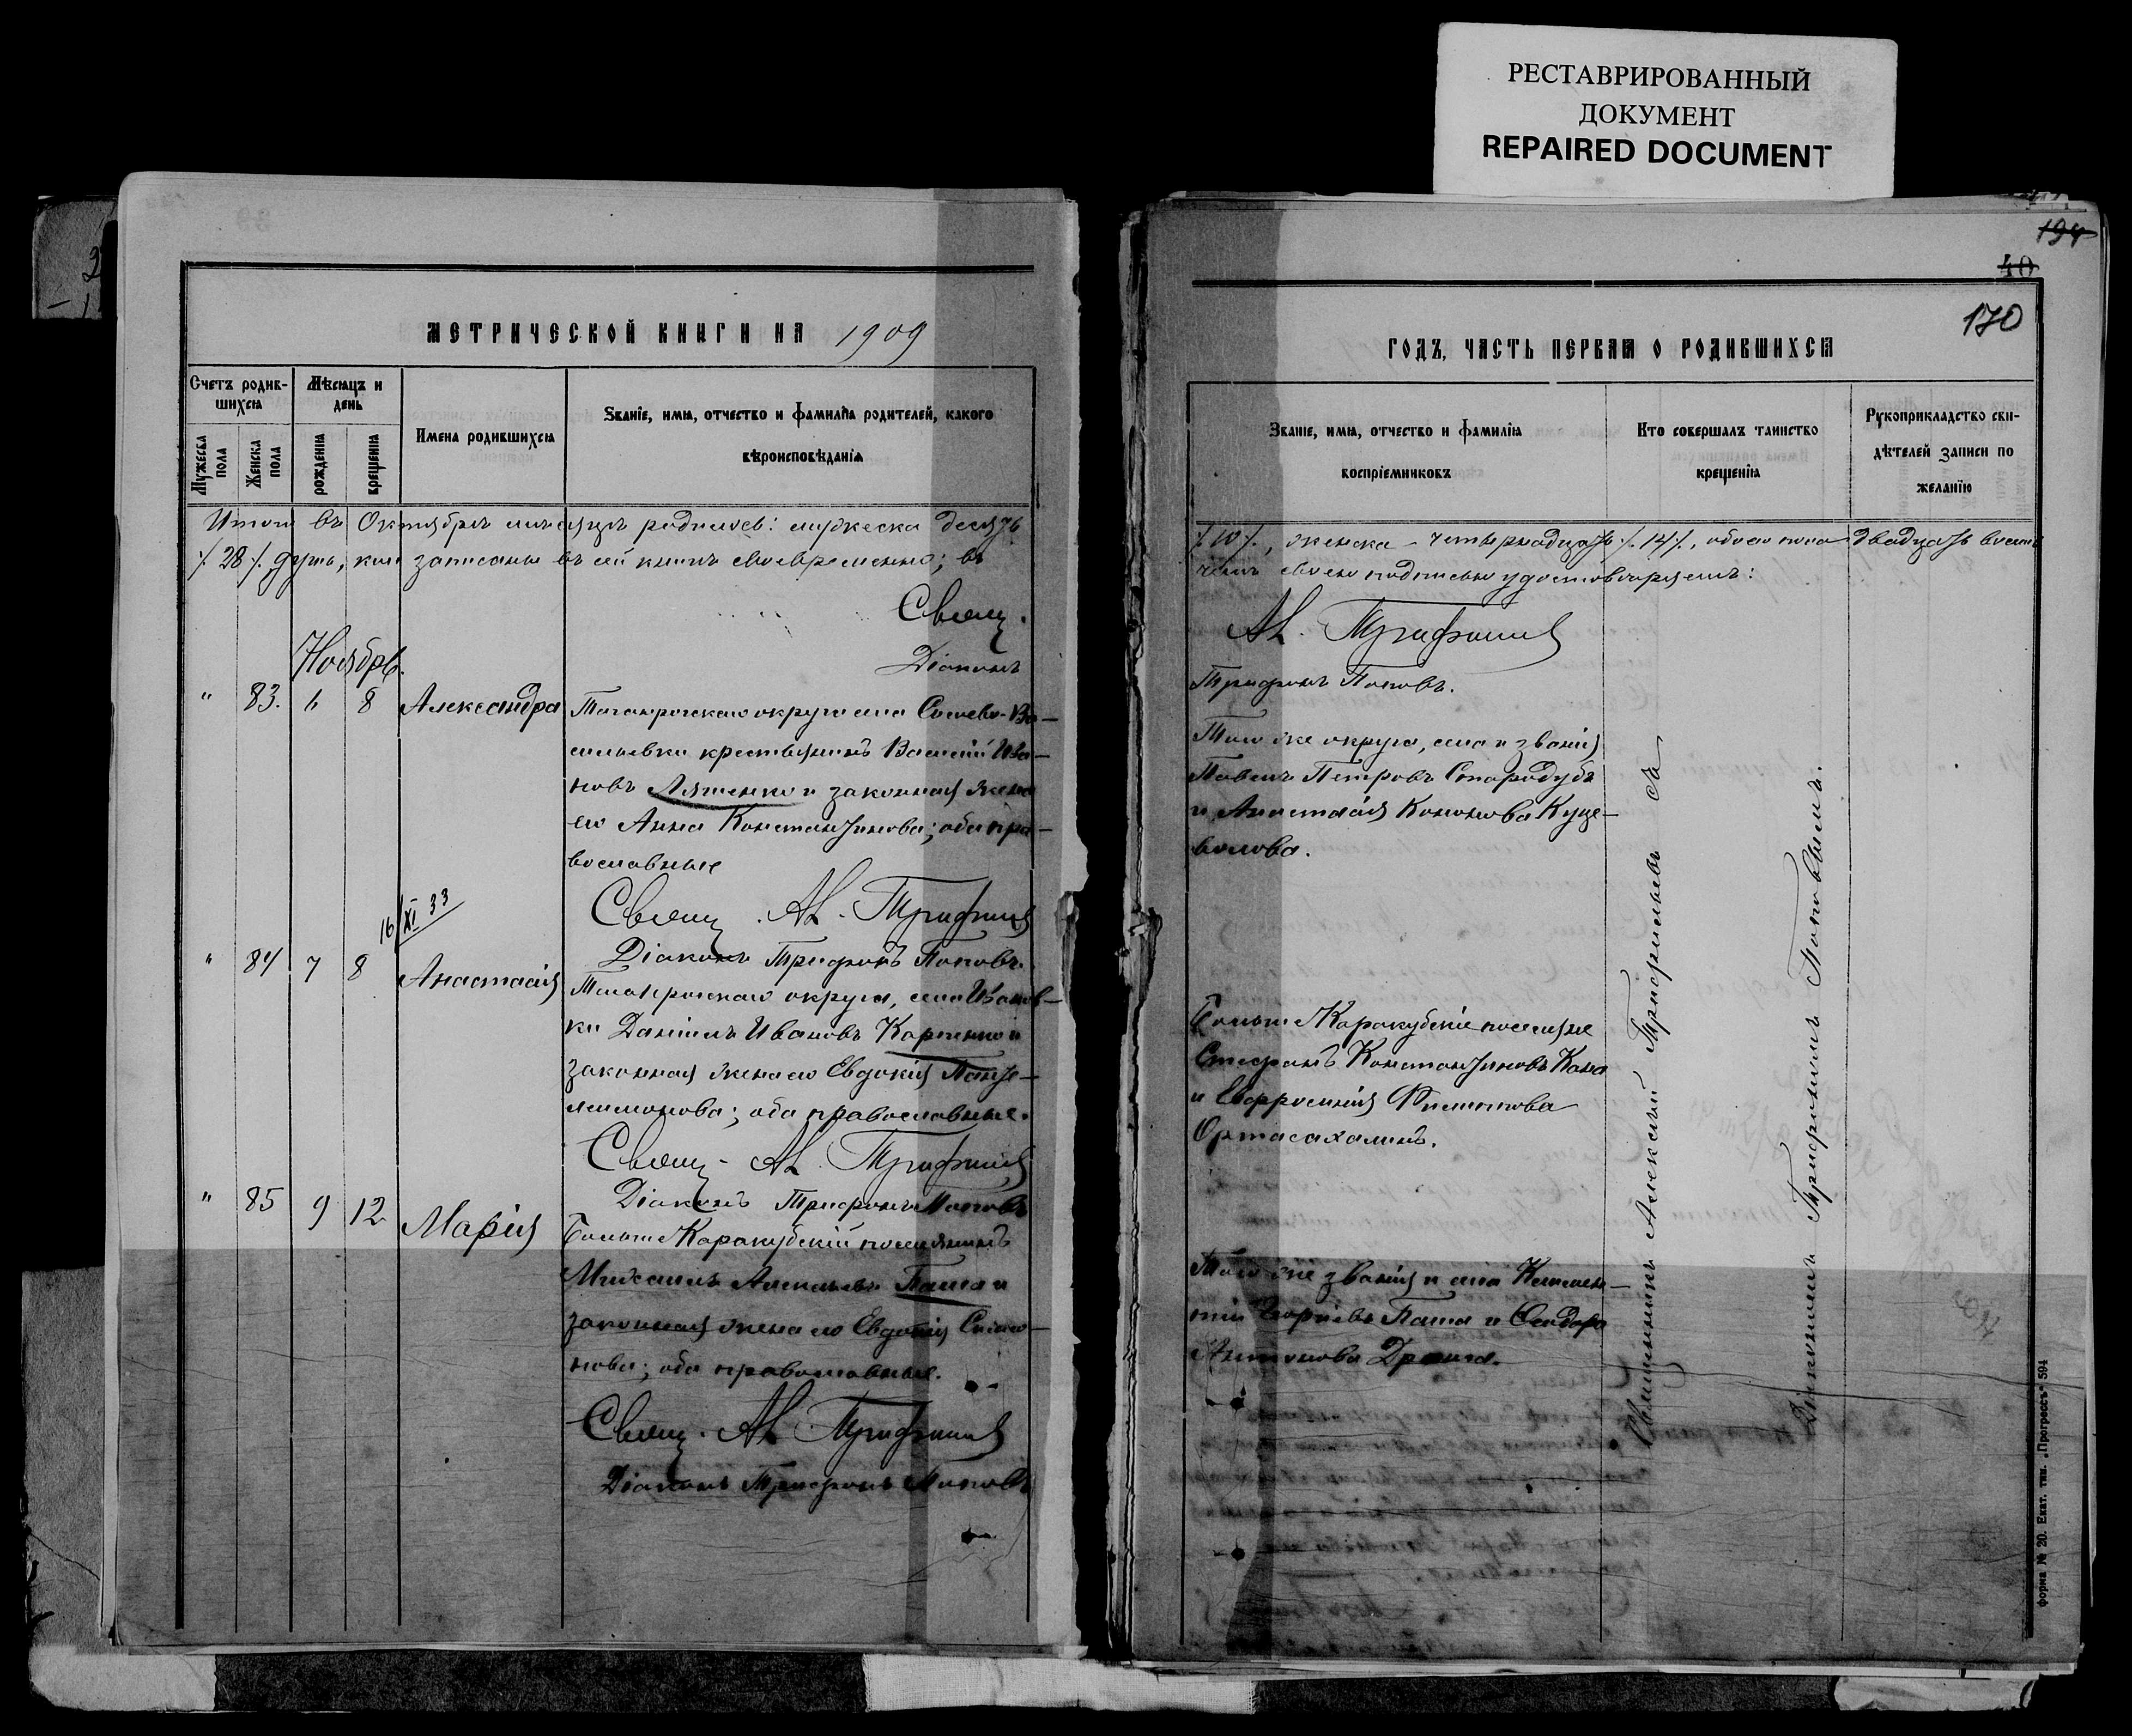 РЕСТАВРИРОВАННЫЙ
ДОКУМЕНТ
REPAIRED DOCUMENT
МЕТРИЧЕСКОЙ КНИГИ НА 1909
Счетъ родив-
шихся
Мужеска пола
Женска пола
Мѣсяцъ и
день
рожденія
крещенія
Имена родившихся
Званіе, имя, отчество и фамилія родителей, какого
вѣроисповѣданія
Итого въ Октябрѣ мѣсяцѣ родилось: мужеска десять
/.28/. душъ, кои записаны въ сей книгѣ своевременно; въ
Свящ.
Діаконъ
Ноябрь.
" 83. 6 8 Александра
Таганрогскаго округа села Ва-
сильевки крестьянинъ Василій Ива-
новъ Ляшенко и законная жена
его Анна Константинова; оба пра-
вославные
Свящ. Ал. Трифильевъ
Діаконъ Трифонъ Поповъ.
16/XI 33
" 84 7 8 Анастасія
Таганрогскаго округа, села Иванов-
ки Даніилъ Ивановъ Карпенко и
законная жена его Евдокія Панте-
леимонова; оба православные.
Свящ- Ал. Трифильевъ
Діаконъ Трифонъ Поповъ
" 85 9 12 Марія
Больше Каракубскій поселянинъ
Михаилъ Паша и
законная жена его Евдокія
оба православные.
Свящ. Ал. Трифильевъ
Діаконъ Трифонъ Поповъ
194
40
170
ГОДЪ, ЧАСТЬ ПЕРВАЯ О РОДИВШИХСЯ
Званіе, имя, отчество и фамилія
воспріемниковъ
Кто совершалъ таинство
крещенія
Рукоприкладство сви-
дѣтелей записи по
желанію
/.10/., женска - четырнадцать /.14/., обоего пола двадцать восемь
чемъ своею подписью удостовѣряемъ:
Ал. Трифильевъ
Трифонъ Поповъ.
Того же округа, села и званія
Павелъ Петровъ Стародубъ
и Анастасія Кононова Куце-
волова.
Больше Каракубскіе поселяне
Стефанъ Константиновъ
и Евфросинія
Того же званія и села
Георгіевъ Паша и Ѳеодора
Антонова
Священникъ Алексѣй Трифильевъ съ
Діакономъ Трифономъ Поповымъ.
форма № 20. Екат. тип. „Прогрессъ" 594